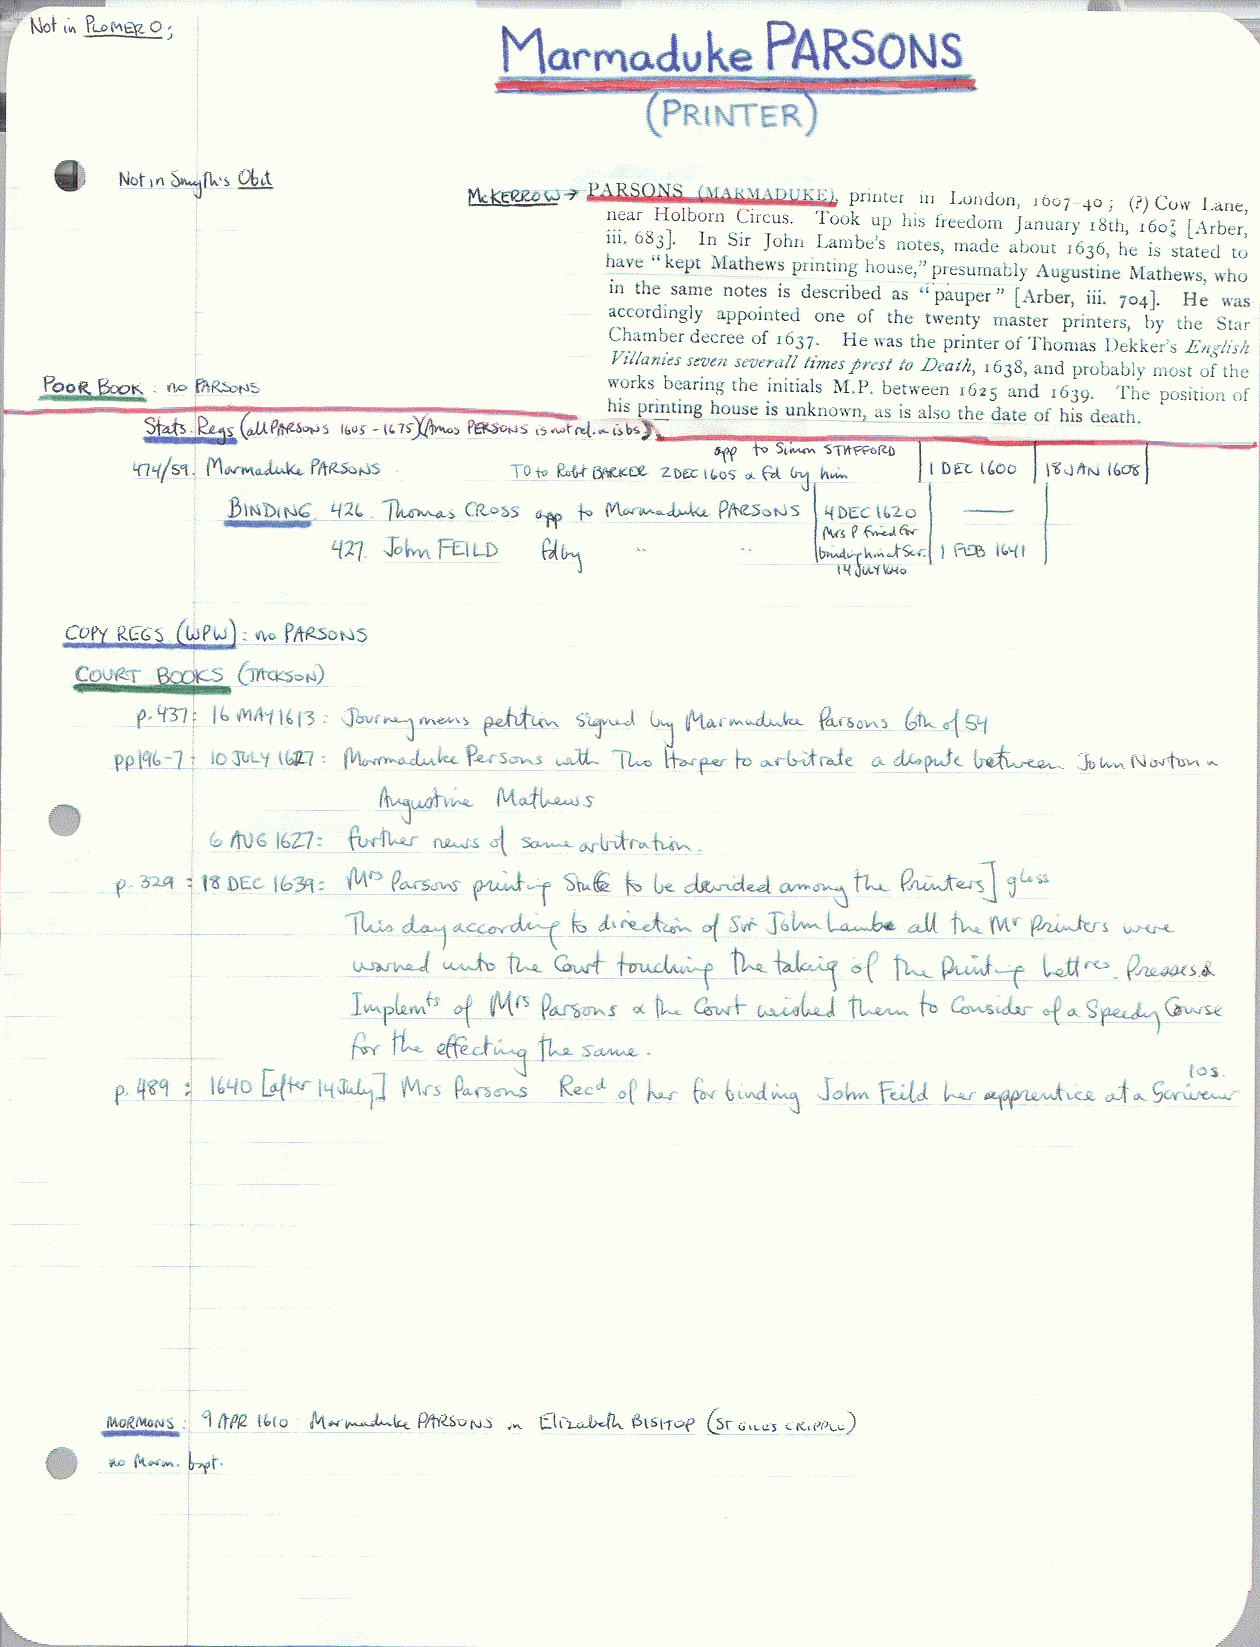 Not in PLOMER O;
Marmaduke PARSONS
(PRINTER)
Not in Smyth's Obit
McKERROW → PARSONS (MARMADUKE), printer in London, 1607-40; (?) Cow Lane,
near Holborn Circus. Took up his freedom January 18th, 160⅞ [Arber,
iii. 683]. In Sir John Lambe's notes, made about 1636, he is stated to
have "kept Mathews printing house," presumably Augustine Mathews, who
in the same notes is described as "pauper" [Arber, iii. 704]. He was
accordingly appointed one of the twenty master printers, by the Star
Chamber decree of 1637. He was the printer of Thomas Dekker's English
Villanies seven severall times prest to Death, 1638, and probably most of the
works bearing the initials M.P. between 1625 and 1639. The position of
his printing house is unknown, as is also the date of his death.
POOR BOOK : no PARSONS
Stats. Regs (all PARSONS 1605-1675) (Amos PERSONS is not rel.
app to Simon STAFFORD
474/59. Marmaduke PARSONS TO to Robt BARKER 2 DEC 1605 & fd by him 1 DEC 1600 18 JAN 1608
BINDING 426. Thomas CROSS app to Marmaduke PARSONS 4 DEC 1620 —
Mrs P fined for
427. John FEILD fd by " " binding him at Scr. 1 FEB 1641
14 JULY 1640
COPY REGS (WPW) : no PARSONS
COURT BOOKS (JACKSON)
p.437: 16 MAY 1613: Journeymens petition signed by Marmaduke Parsons 6th of 54
pp196-7: 10 JULY 1627: Marmaduke Persons with Tho Harper to arbitrate a dispute between John Norton &
Augustine Mathews
6 AUG 1627: further news of same arbitration.
p.329: 18 DEC 1639: Mrs Parsons printing Stuffe to be devided among the Printers] gloss
This day according to direction of Sir John Lambe all the Mr Printers were
warned unto the Court touching the taking of the Printing Lettres. Presses &
Implemts of Mrs Parsons & the Court wished them to Consider of a Speedy Course
for the effecting the same.
p.489: 1640 [after 14 July] Mrs Parsons Recd of her for binding John Feild her apprentice at a Scrivener
10s.
MORMONS: 9 APR 1610 Marmaduke PARSONS m Elizabeth BISHOP (ST GILES CRIPPLE)
no Marm. bapt.